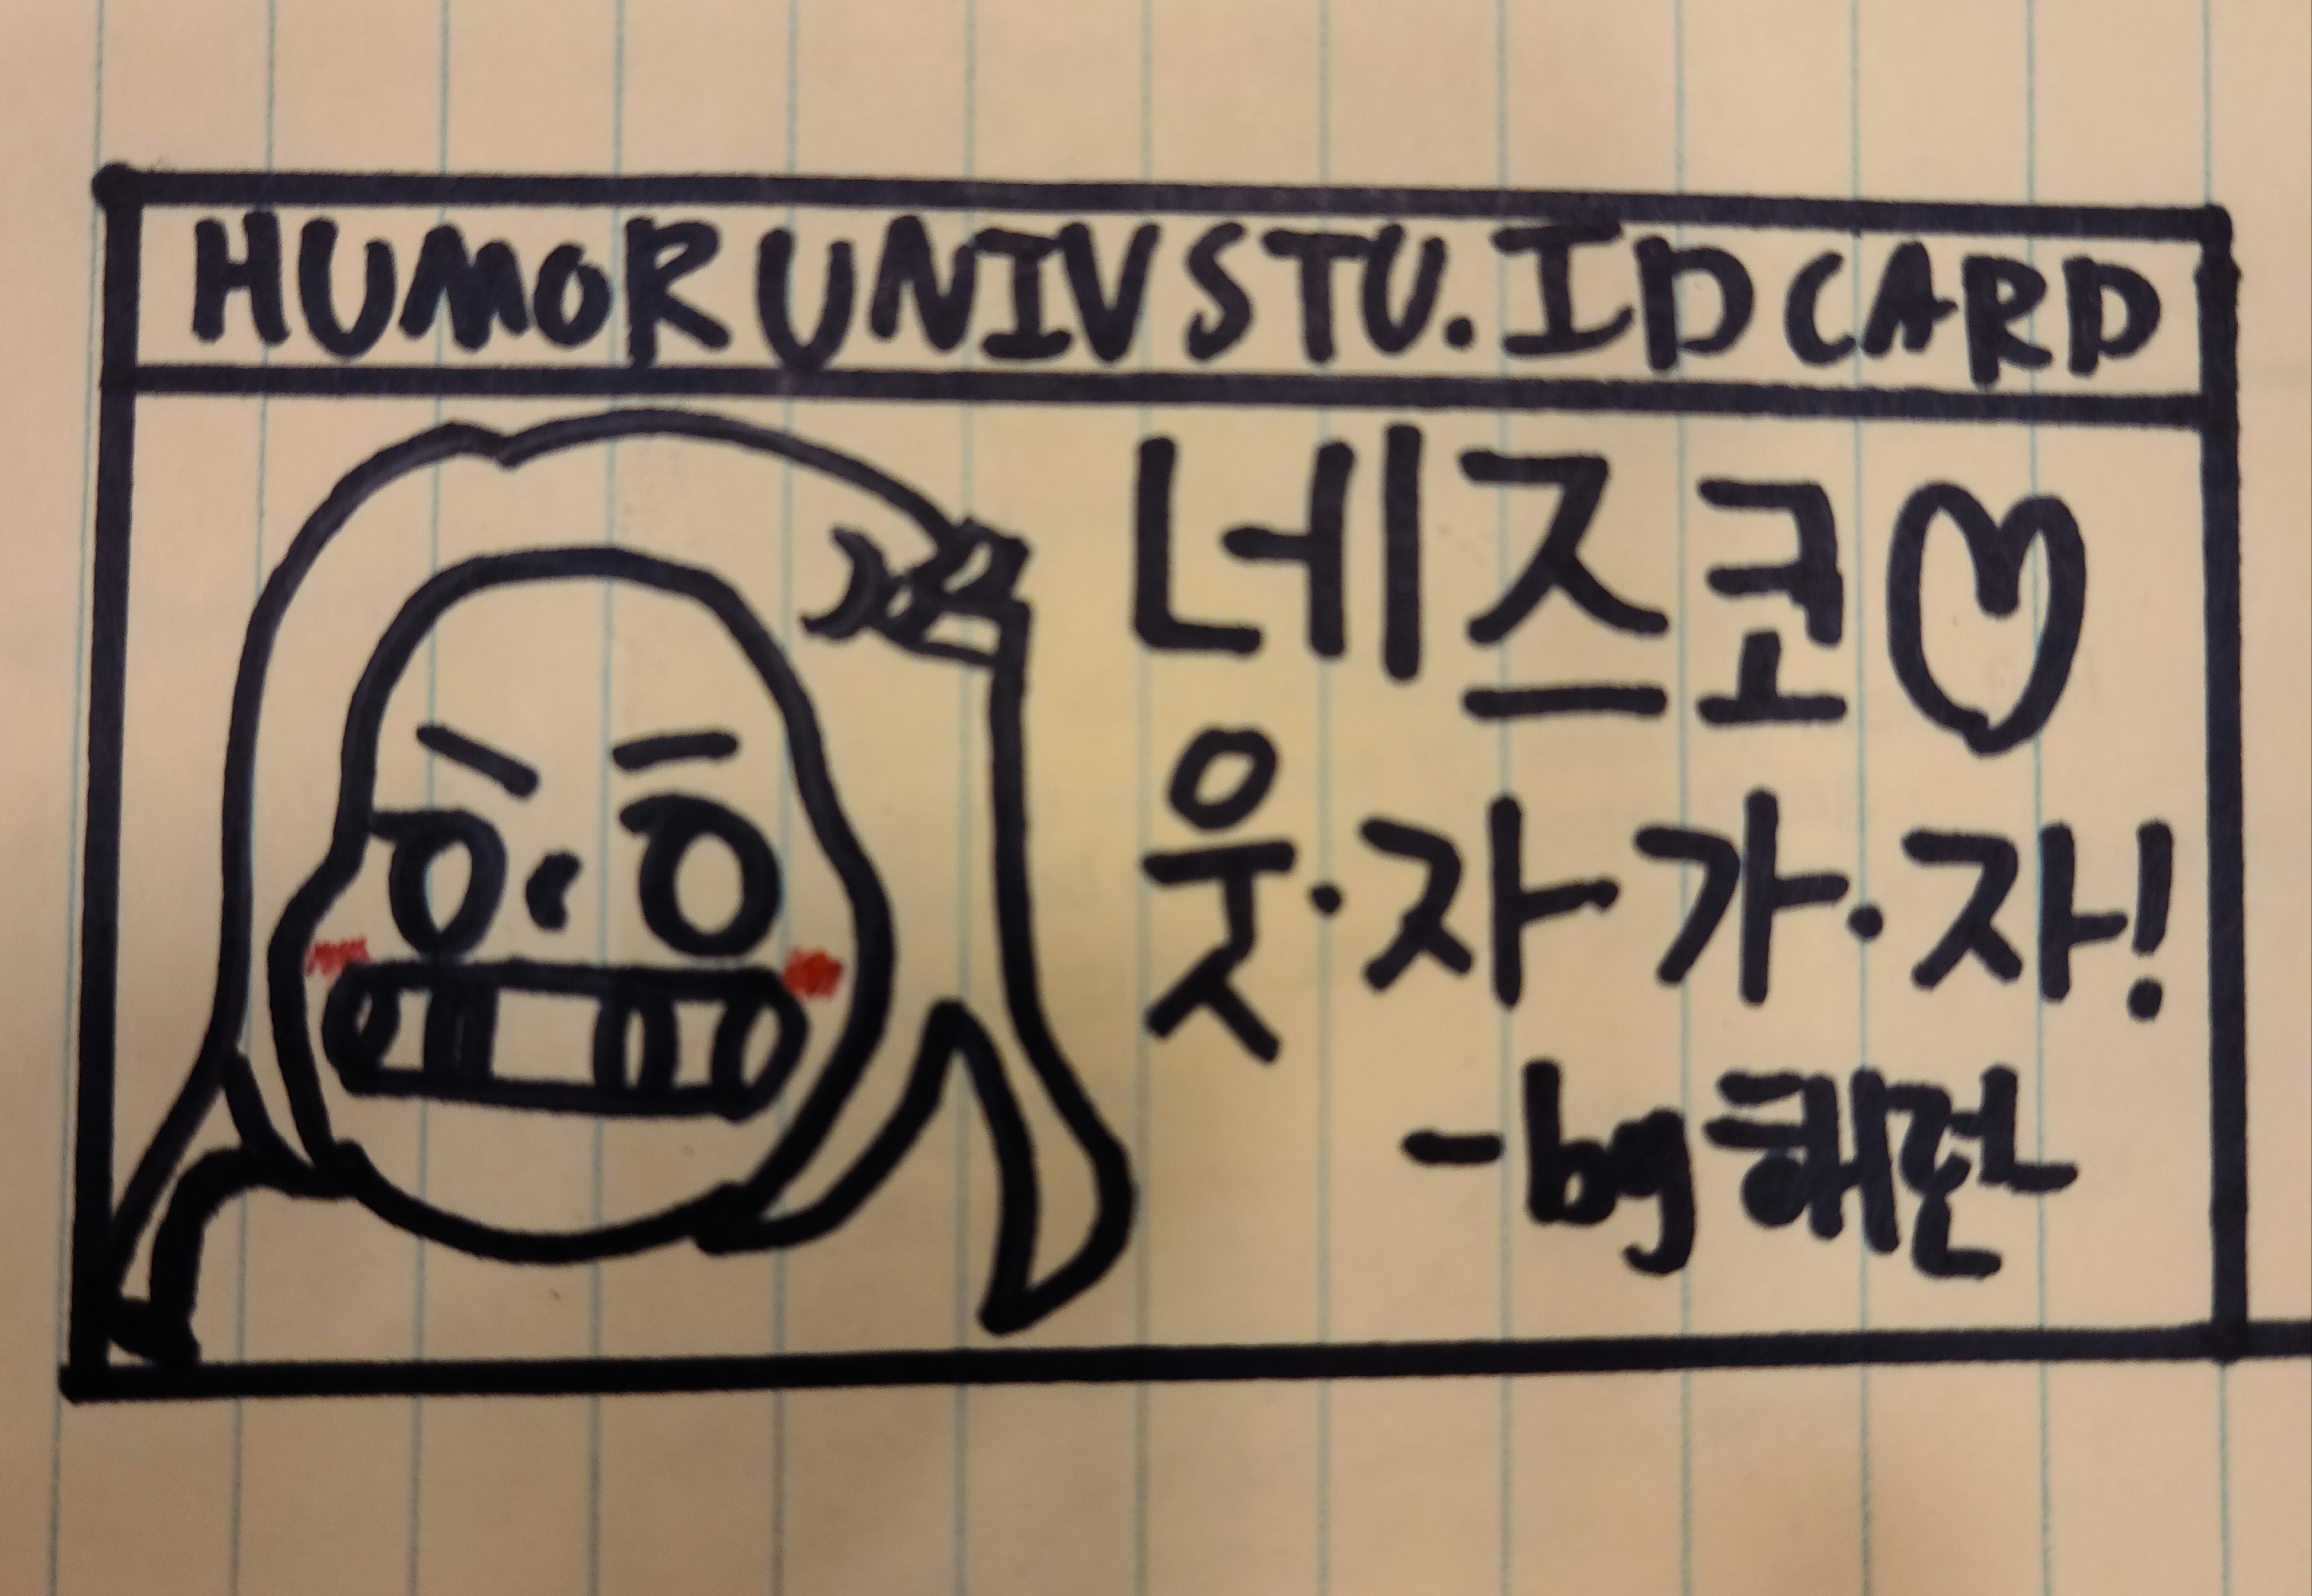 HUMOR UNIV STU. ID CARD
네즈코♡
웃·자 가·자!
-bg해펀